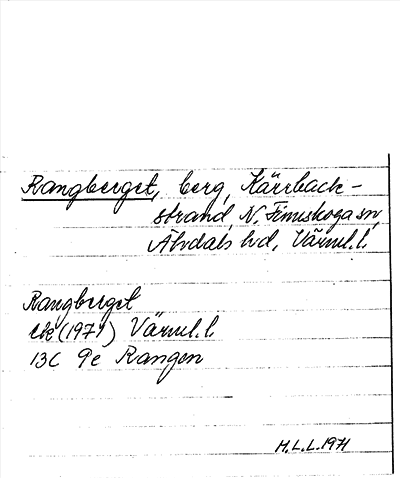 Rangberget, berg, Kärrback-
strand, N. Finnskoga sn,
Älvdals hd, Värml. l.
Rangberget
ek (1971) Värml. l.
13C 9e Rangen
H.L.L. 1971